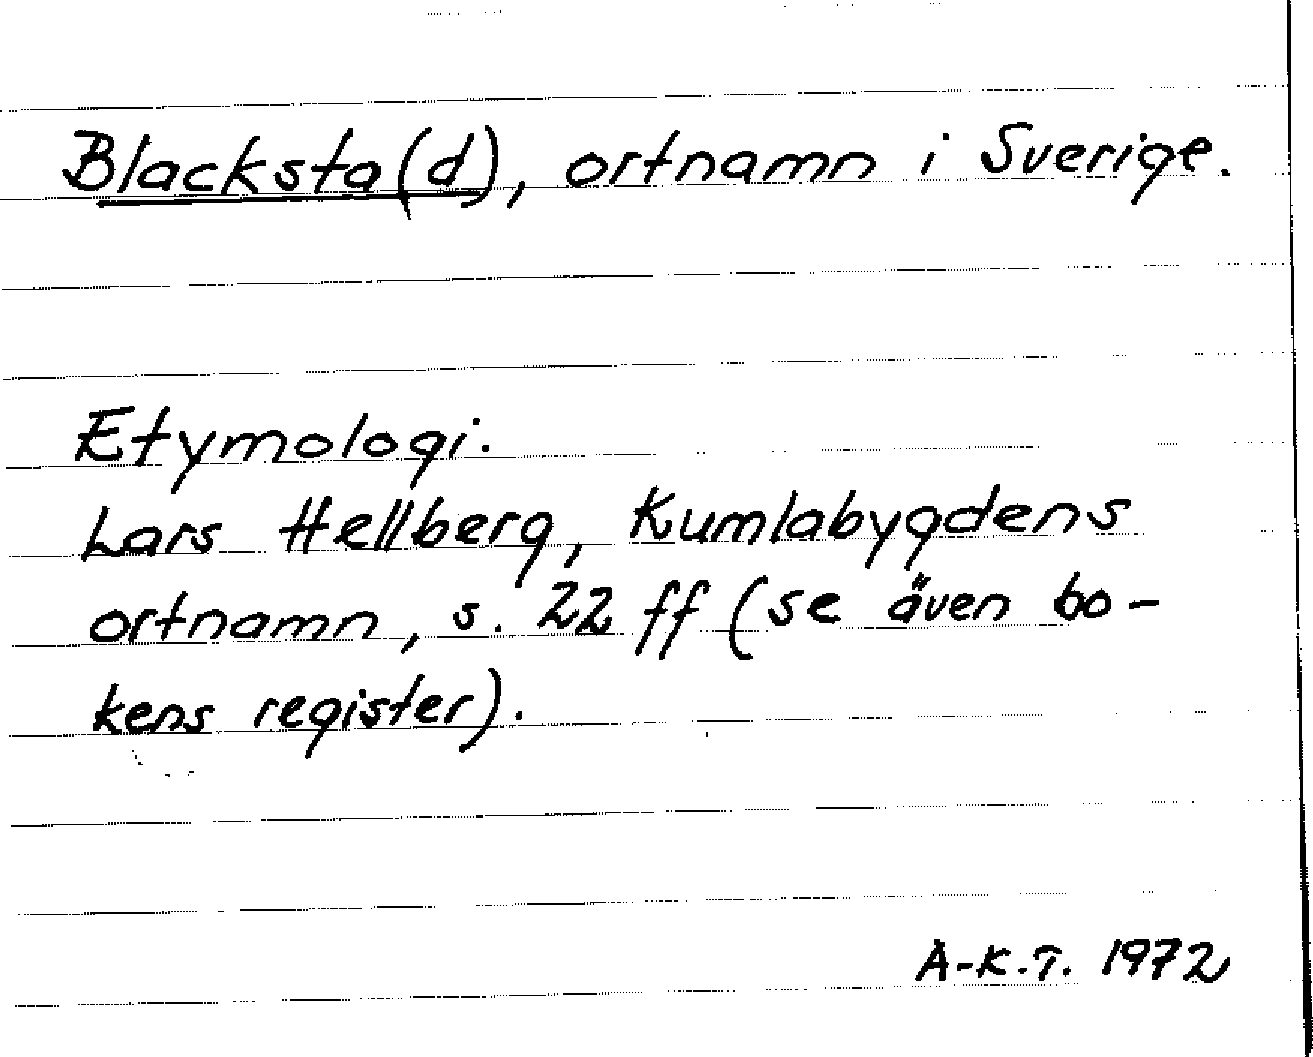 Blacksta(d), ortnamn i Sverige.
Etymologi.
Lars Hellberg, Kumlabygdens
ortnamn, s. 22 ff (se även bo-
kens register).
A-K.T. 1972